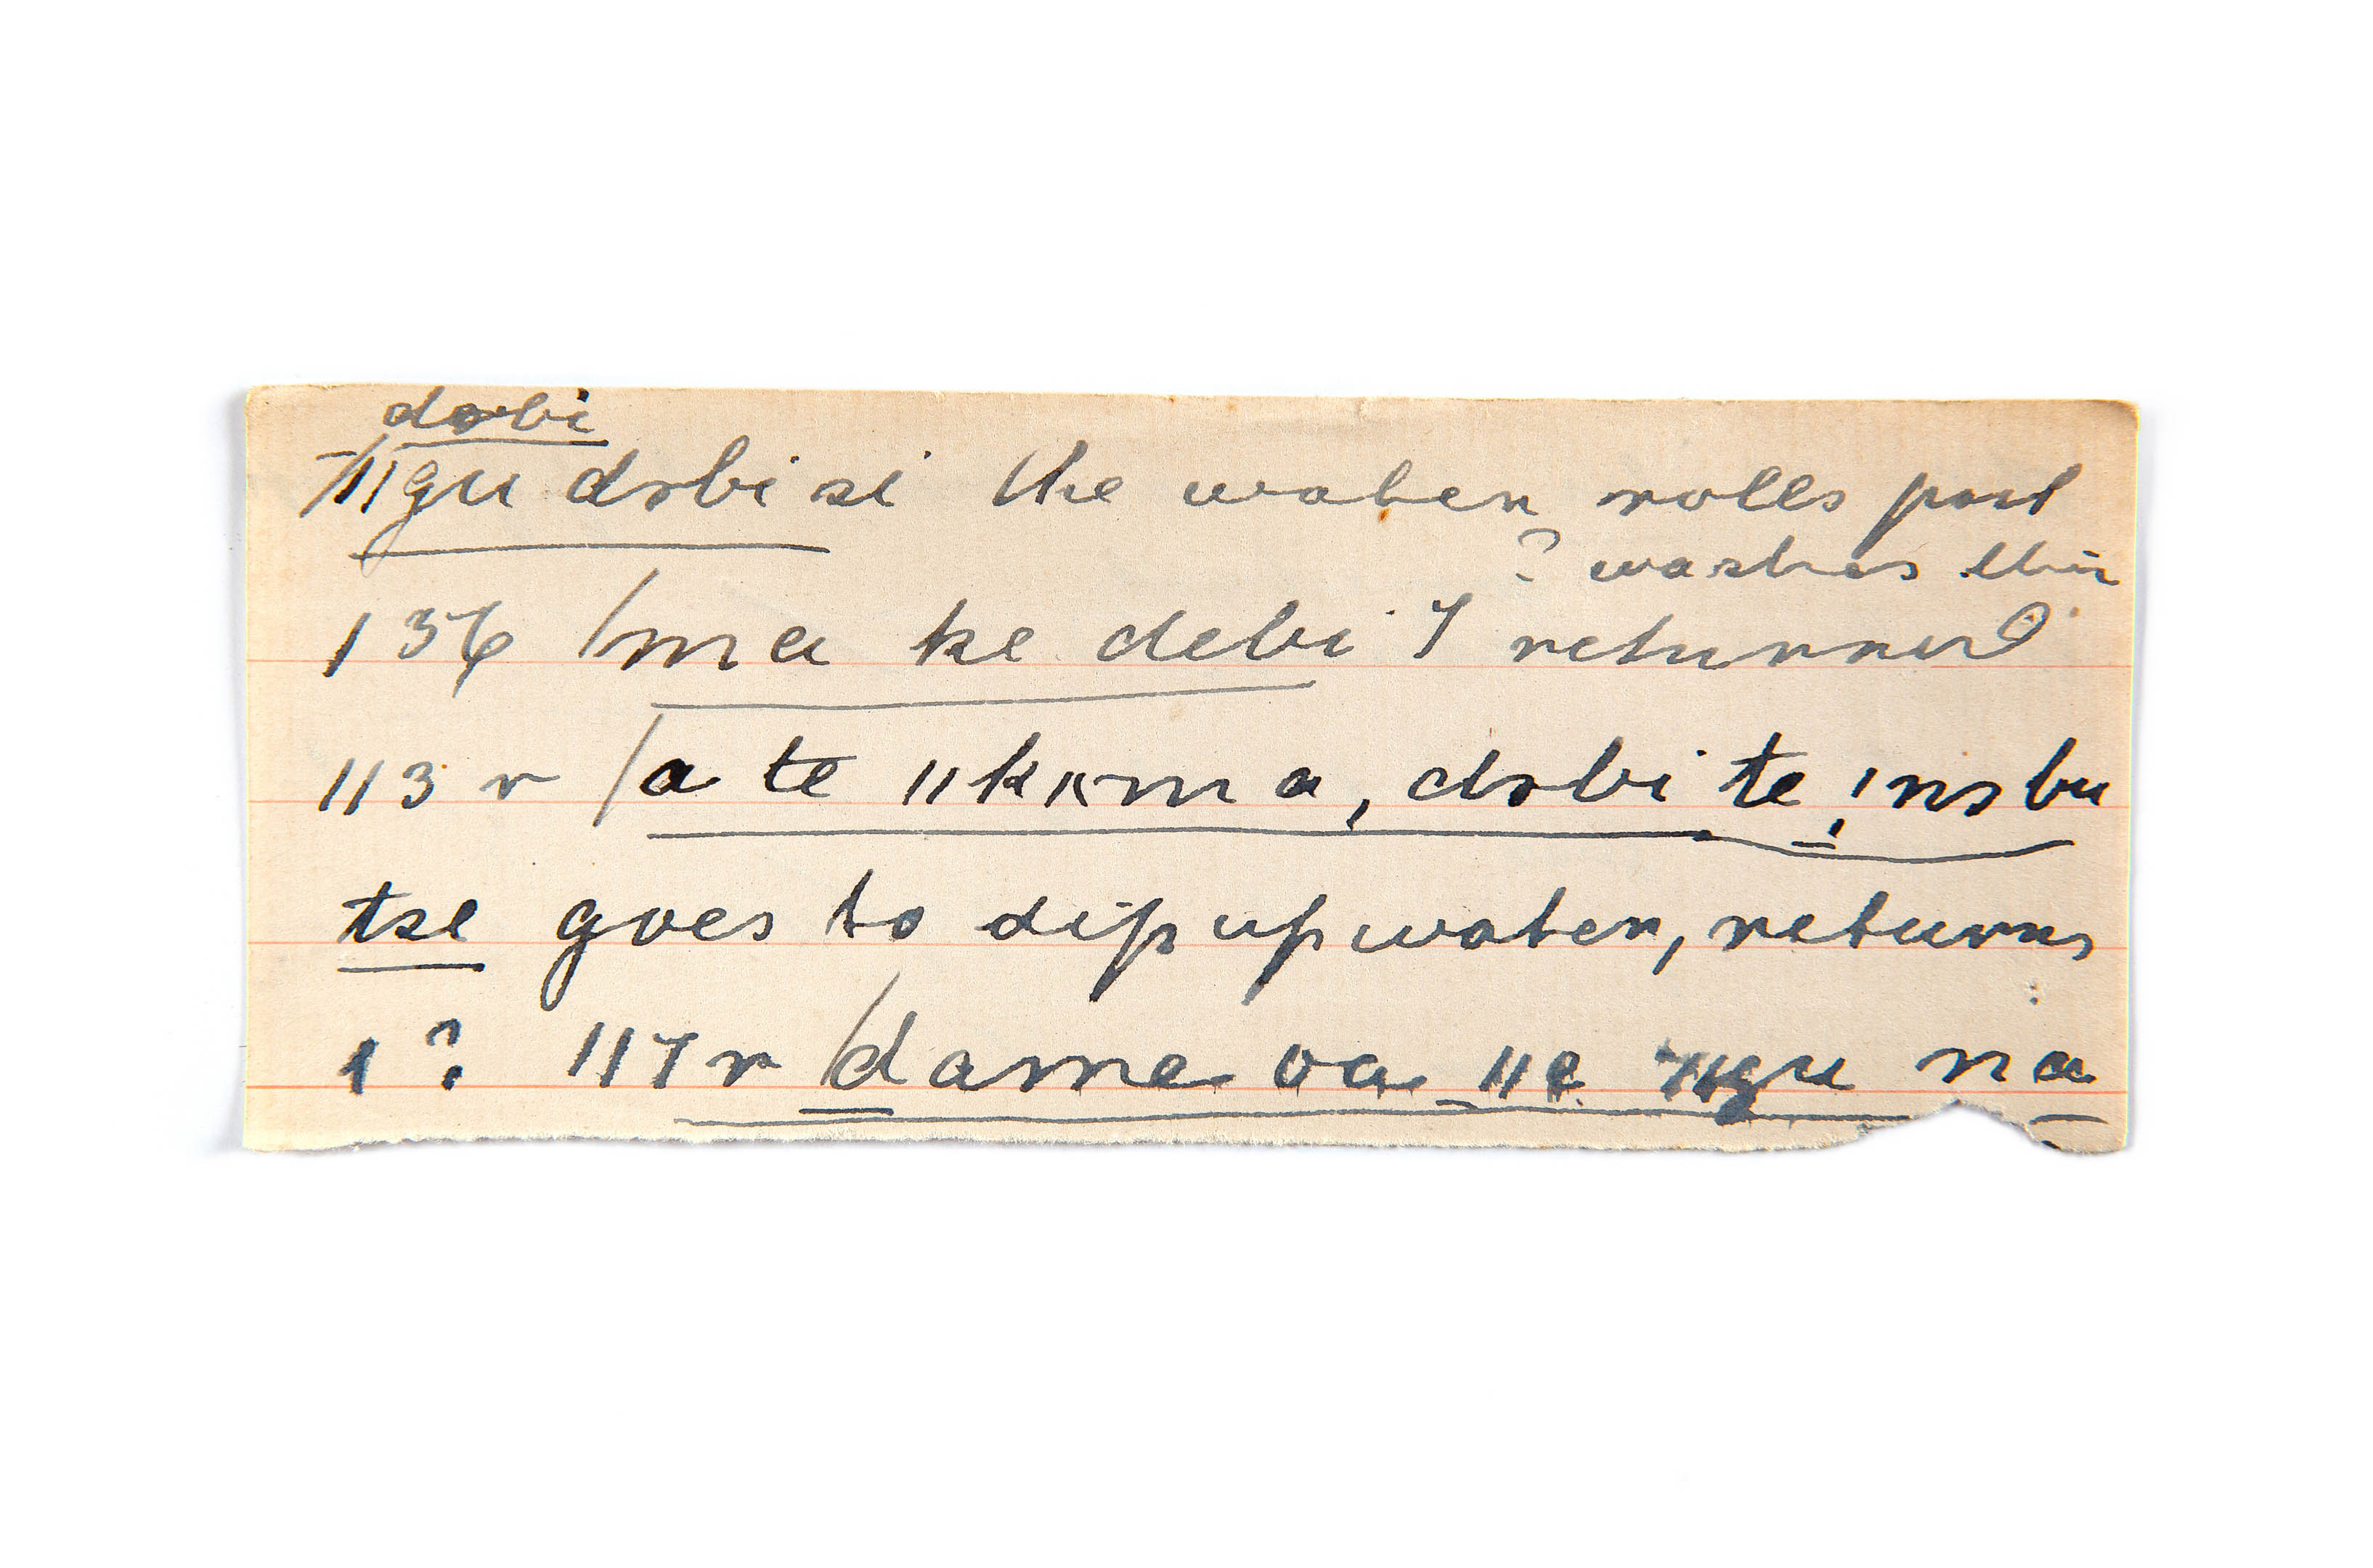 dobi
ǁgu dobi si the water rolls past
? washes thin
136 /ma ke debi I returned
113 r /a te ǁkʌma, dobi te, ǀnobu
tse goes to dip up water, returns
1? 117 r /dame oa ǁe ǁgu na